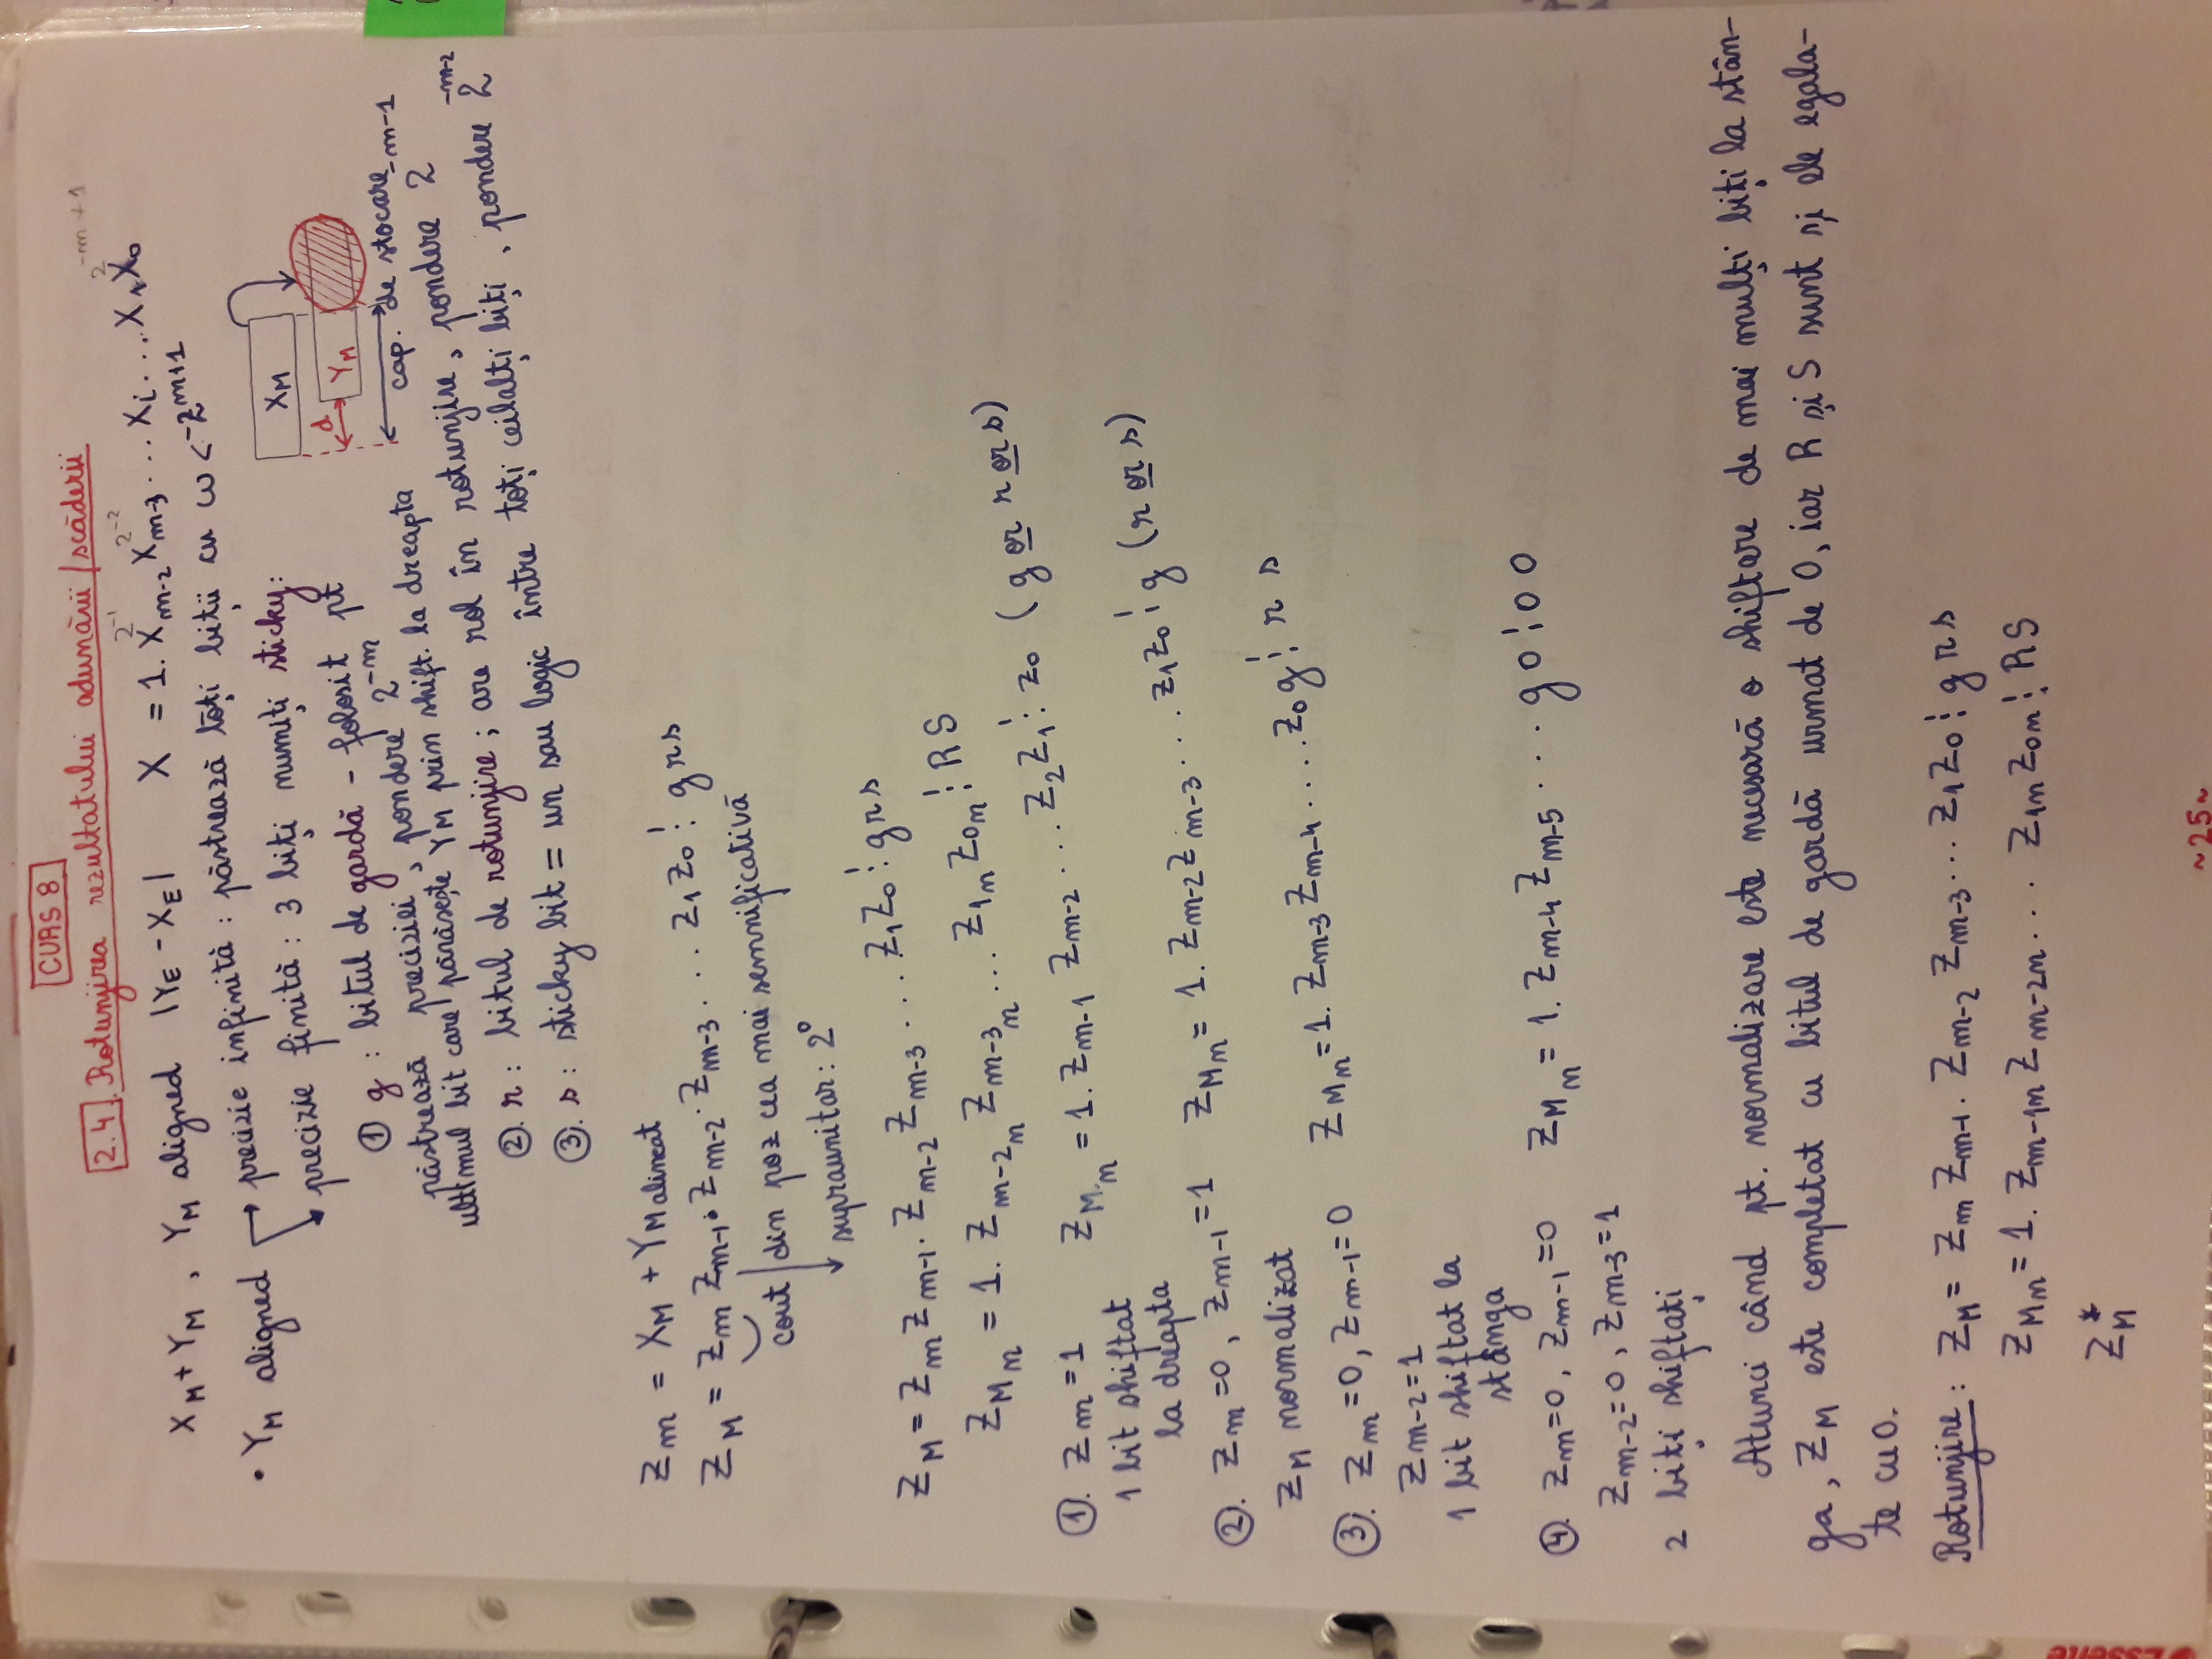 CURS 8
2.4. Rotunjirea rezultatului adunării/scăderii
X_M + Y_M , Y_M aligned |Y_E - X_E| X = 1. X_{m-2} X_{m-3} ... X_i ... X_1 X_0
2^{-1} 2^{-2} 2^{-m+1}
• Y_M aligned → precizie infinită : păstrează toți biții cu ω < -2^{m+1}
precizie finită : 3 biți numiți sticky:
X_M
d Y_M
cap. de stocare
① g : bitul de gardă - folosit pt
păstrează preciziei , pondere 2^{-m}
ultimul bit care părăsește Y_M prin shift. la dreapta
②. r : bitul de rotunjire ; are rol în rotunjire, pondere 2^{-m-1}
③. s : sticky bit = un sau logic între toți ceilalți biți , pondere 2^{-m-2}
Z_m = X_M + Y_M alineat
Z_M = Z_m Z_{m-1} . Z_{m-2} . Z_{m-3} . . . Z_1 Z_0 ⁝ g r s
cout din poz cea mai semnificativă
supraunitar : 2^0
Z_M = Z_m Z_{m-1} . Z_{m-2} Z_{m-3} . . . . Z_1 Z_0 ⁝ g r s
Z_{M_n} = 1. Z_{m-2_n} Z_{m-3_n} ... Z_{1_n} Z_{0_n} ⁝ R S
①. Z_m = 1 Z_{M_n} = 1. Z_{m-1} Z_{m-2} . . . Z_2 Z_1 ⁝ z_0 ( g or r or s)
1 bit shiftat
la dreapta
②. Z_m = 0 , Z_{m-1} = 1 Z_{M_n} = 1. Z_{m-2} Z_{m-3} . . . z_1 z_0 ⁝ g (r or s)
Z_M normalizat
③. Z_m = 0, Z_{m-1} = 0 Z_{M_n} = 1. Z_{m-3} Z_{m-4} . . . . z_0 g ⁝ r s
Z_{m-2} = 1
1 bit shiftat la
stânga
④. Z_m = 0 , Z_{m-1} = 0 Z_{M_n} = 1. Z_{m-4} Z_{m-5} . . . g 0 ⁝ 0 0
Z_{m-2} = 0 , Z_{m-3} = 1
2 biți shiftați
Atunci când pt. normalizare este necesară o shiftare de mai mulți biți la stân-
ga, Z_M este completat cu bitul de gardă urmat de 0, iar R și S sunt și ele egala-
te cu 0.
Rotunjire : Z_M = Z_m Z_{m-1} . Z_{m-2} Z_{m-3} ... Z_1 Z_0 ⁝ g r s
Z_{M_n} = 1. Z_{m-1n} Z_{m-2n} . . . Z_{1n} Z_{0n} ⁝ R S
Z_M^*
~25~
Esselte